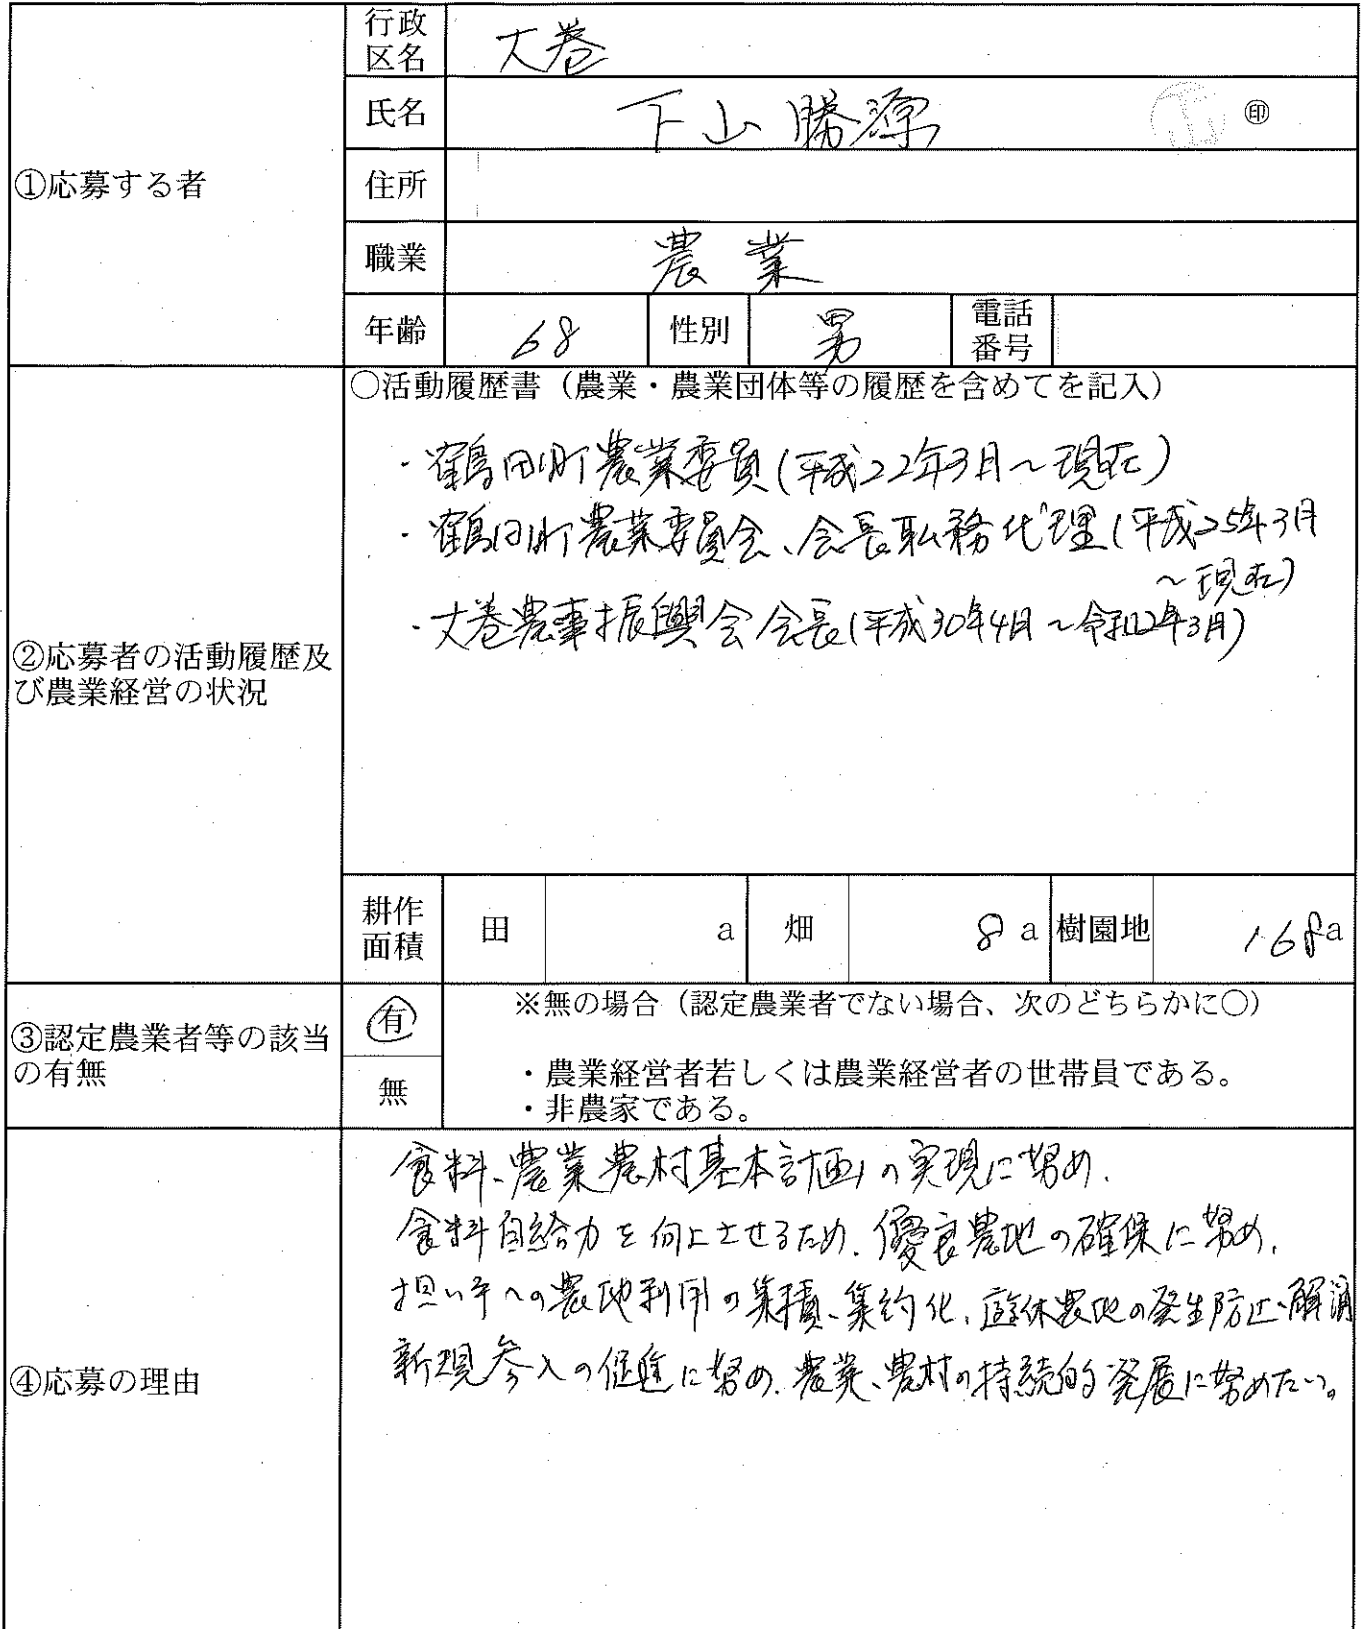 ①応募する者
行政区名 大巻
氏名 下山勝源 ㊞
住所
職業 農業
年齢 68 性別 男 電話番号
②応募者の活動履歴及び農業経営の状況
○活動履歴書（農業・農業団体等の履歴を含めてを記入）
・鶴田町農業委員(平成22年3月～現在)
・鶴田町農業委員会、会長職務代理(平成25年3月
～現在)
・大巻農事振興会会長(平成30年4月～令和2年3月)
耕作面積 田 a 畑 8 a 樹園地 168a
③認定農業者等の該当の有無
有
無
※無の場合（認定農業者でない場合、次のどちらかに○）
・農業経営者若しくは農業経営者の世帯員である。
・非農家である。
④応募の理由
食料、農業農村基本計画の実現に努め、
食料自給力を向上させるため、優良農地の確保に努め、
担い手への農地利用の集積、集約化、遊休農地の発生防止・解消
新規参入の促進に努め、農業、農村の持続的発展に努めたい。